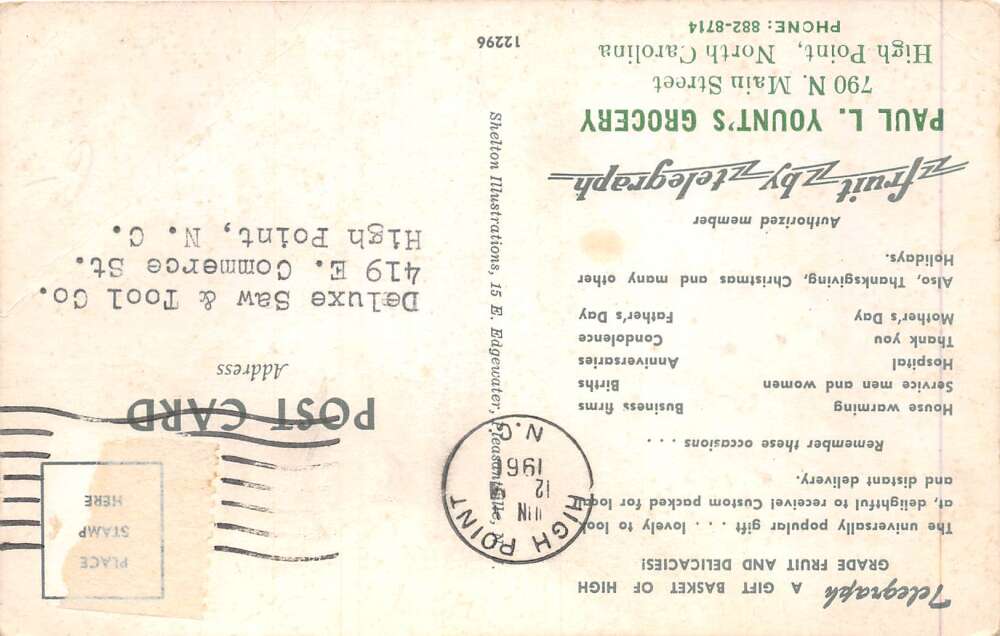 Telegraph A GIFT BASKET OF HIGH
GRADE FRUIT AND DELICACIES!
The universally popular gift . . . . lovely to look
at, delightful to receive! Custom packed for local
and distant delivery.
Remember these occasions . . . .
House warming Business firms
Service men and women Births
Hospital Anniversaries
Thank you Condolence
Mother's Day Father's Day
Also, Thanksgiving, Christmas and many other
Holidays.
Authorized member
fruit by telegraph
PAUL L. YOUNT'S GROCERY
790 N. Main Street
High Point, North Carolina
PHONE: 882-8714
Shelton Illustrations, 15 E. Edgewater,
12296
HIGH POINT
JUN
12
196
N.C.
PLACE
STAMP
HERE
POST CARD
Address
Deluxe Saw & Tool Co.
419 E. Commerce St.
High Point, N. C.